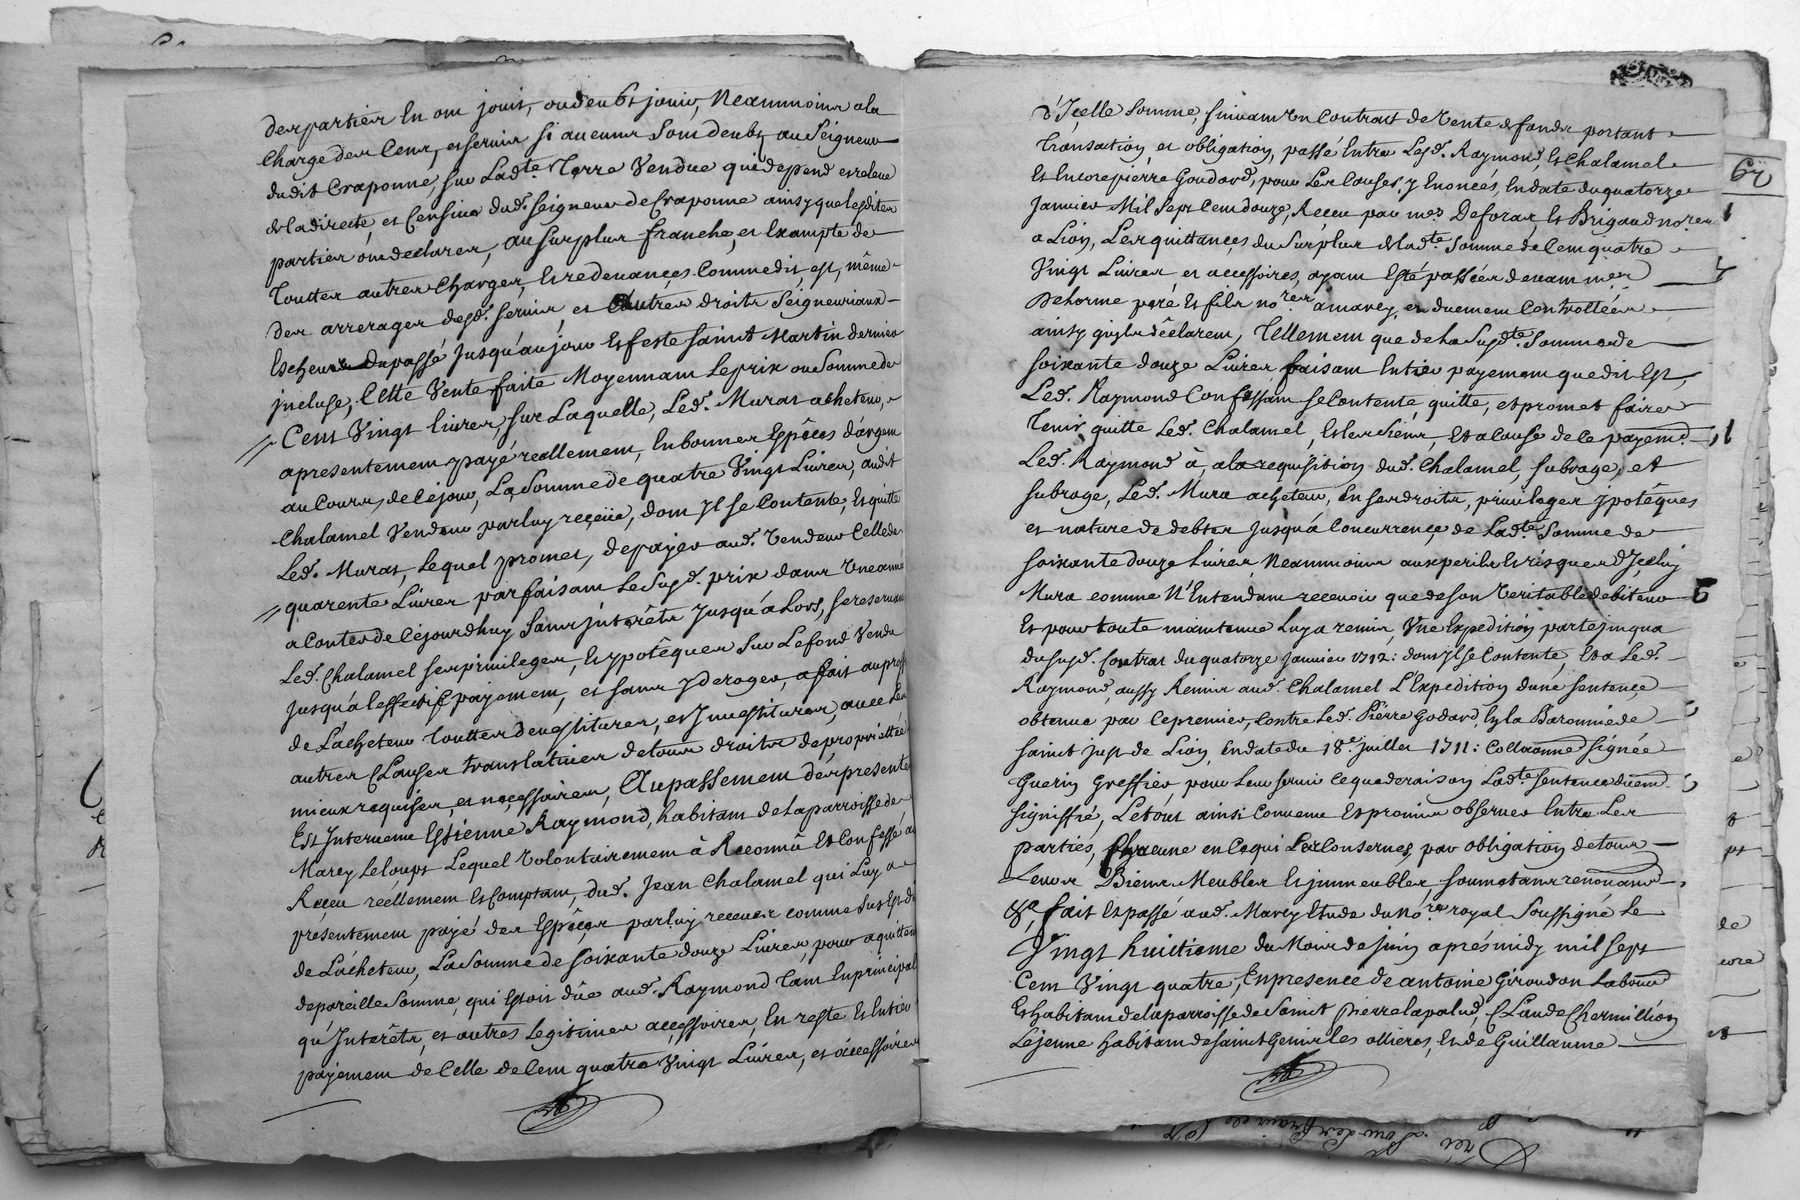 des parties En ont jouit, ou deub jouir, Neanmoins a la
Charge des Cens, et servis si aucuns sont deubs au Seigneur
dudit Craponne, sur Ladte. Terre Vendue qui depend et releve
de la directe, et Censive dud. seigneur de Craponne ainsy que lesdites
parties ont declarer, au surplus franche, et Exampte de
Touttes autres Charges, Et redevances Comme dit, est, même
des arrerages desd. servis, et Autres droits Seigneuriaux
Escheus du passé Jusqu'au jour Et feste saint Martin dernier
jncluse, Cette Vente faite Moyennant Le prix ou Somme de
Cent Vingt livres sur Laquelle, Led. Muras acheteur,
a presentement payé reallement, En bonnes Espêces d'argent
au Cours de Cejour, La Somme de quatre Vingt Livres, audit
Chalamel Vendeur par luy reçeüe, dont Jl se Contente, Et quitte
Led. Muras, Lequel promet, de payer aud. Vendeur Celle de
quarente Livres parfaisant Le susd. prix dans Une année
a Conter de Cejourdhuy Sans jnterêts Jusqu'a Lors, se reservant
Led. Chalamel ses privileges, Et ypotêques Sur Le fond Vendu
Jusqu'a L'effectif payement, et sans y deroger, a fait au profit
de L'acheteur Touttes devestitures, et Jnvestitures, avec Les
autres Clauses translatives de tous droits de proprietté
mieux requises, et neçessaires, Au passement des presentes
Est Jntervenu Estienne Raymond, habitant de la parroisse de
Marcy Leloups Lequel Volontairement à Reconnû Et Confessé avoir
Reçeu réellement Et Comptant, dud. Jean Chalamel qui Luy a
présentement payé des Espêces par luy receues comme sus Est dit
de L'acheteur, La Somme de soixante douze Livres, pour aquittement
de pareille Somme, qui Estoit dûe aud. Raymond Tant En principal
qu'Jnterêts, et autres Legitimes açessoires, En reste Et Entier
payement de Celle de Cent quatre Vingt Livres, et accessoires
d'Jçelle Somme, suivant Un Contrait de Vente de fonds portant
Transaction, et obligation, passé Entre Lesd. Raymond, Et Chalamel
Et Encore pierre Goudard, pour Les Causes, y Enoncés, En date du quatorze
Janvier Mil Sept Cent douze, Reçeu par mes. Deforas, Et Brigaud nores.
a Lion, Les quittançes du Surplus de Ladte. Somme de Cent quatre
Vingt Livres et accessoires, ayant Esté passées devant mes.
Delorme peré Et fils nores. a marcy, et duement Controllées
ainsy qu'jls dêclarent, Tellement que de La Susdte. Somme de
soixante douze Livres faisant Entier payement que dit Est,
Led. Raymond Confessant se Contente, quitte, et promet faire
Tenir quitte Led. Chalamel, Et les siens, Et a Cause de Ce payemt.
Led. Raymond à, a la requisition dud. Chalamel, subroge, et
subroge, Led. Mura acheteur, En ses droits, privileges ypotêques
et nature de debtes Jusqu'a Concurrençe, de Ladte. Somme de
soixante douze Livres, Neanmoins aux perils Et risques d'Jçeluy
Mura comme N'Entendant recevoir que de son Veritable debiteur
Et pour toute maintenue Luy a remis, Vne Expedition parte jn qua
du susd. Contrat du quatorze Janvier 1712: dont Jl se Contente, Et a Led.
Raymond, aussy Remis aud. Chalamel L'Expedition dune sentençe
obtenue par Ce premier, Contre Led. Pierre Godard, En La Baronnie de
saint Just de Lion, En date du 18e. juillet 1711: Collationné signée
Guerin Greffier, pour Leur servir Ce que de raison Ladte. sentence duemt.
signiffié, Le tout ainsi Convenu Et promis observer Entre Les
parties, Chacune en Ce qui Les Conserne, par obligation de tous
Leurs Biens Meubles Et jmmeubles soumetans renonants
&a, fait Et passé aud. Marcy Etude du nore. royal Soussigné Le
Vingt huitieme du Mois de juin aprés midy mil sept
Cent Vingt quatre, En presençe de antoine Giroudon Laboureur
Et habitant de la parroisse de Saint Pierre la palud, Claude Chermillion
Le jeune habitant de saint Genis les ollieres, Et de Guillaume